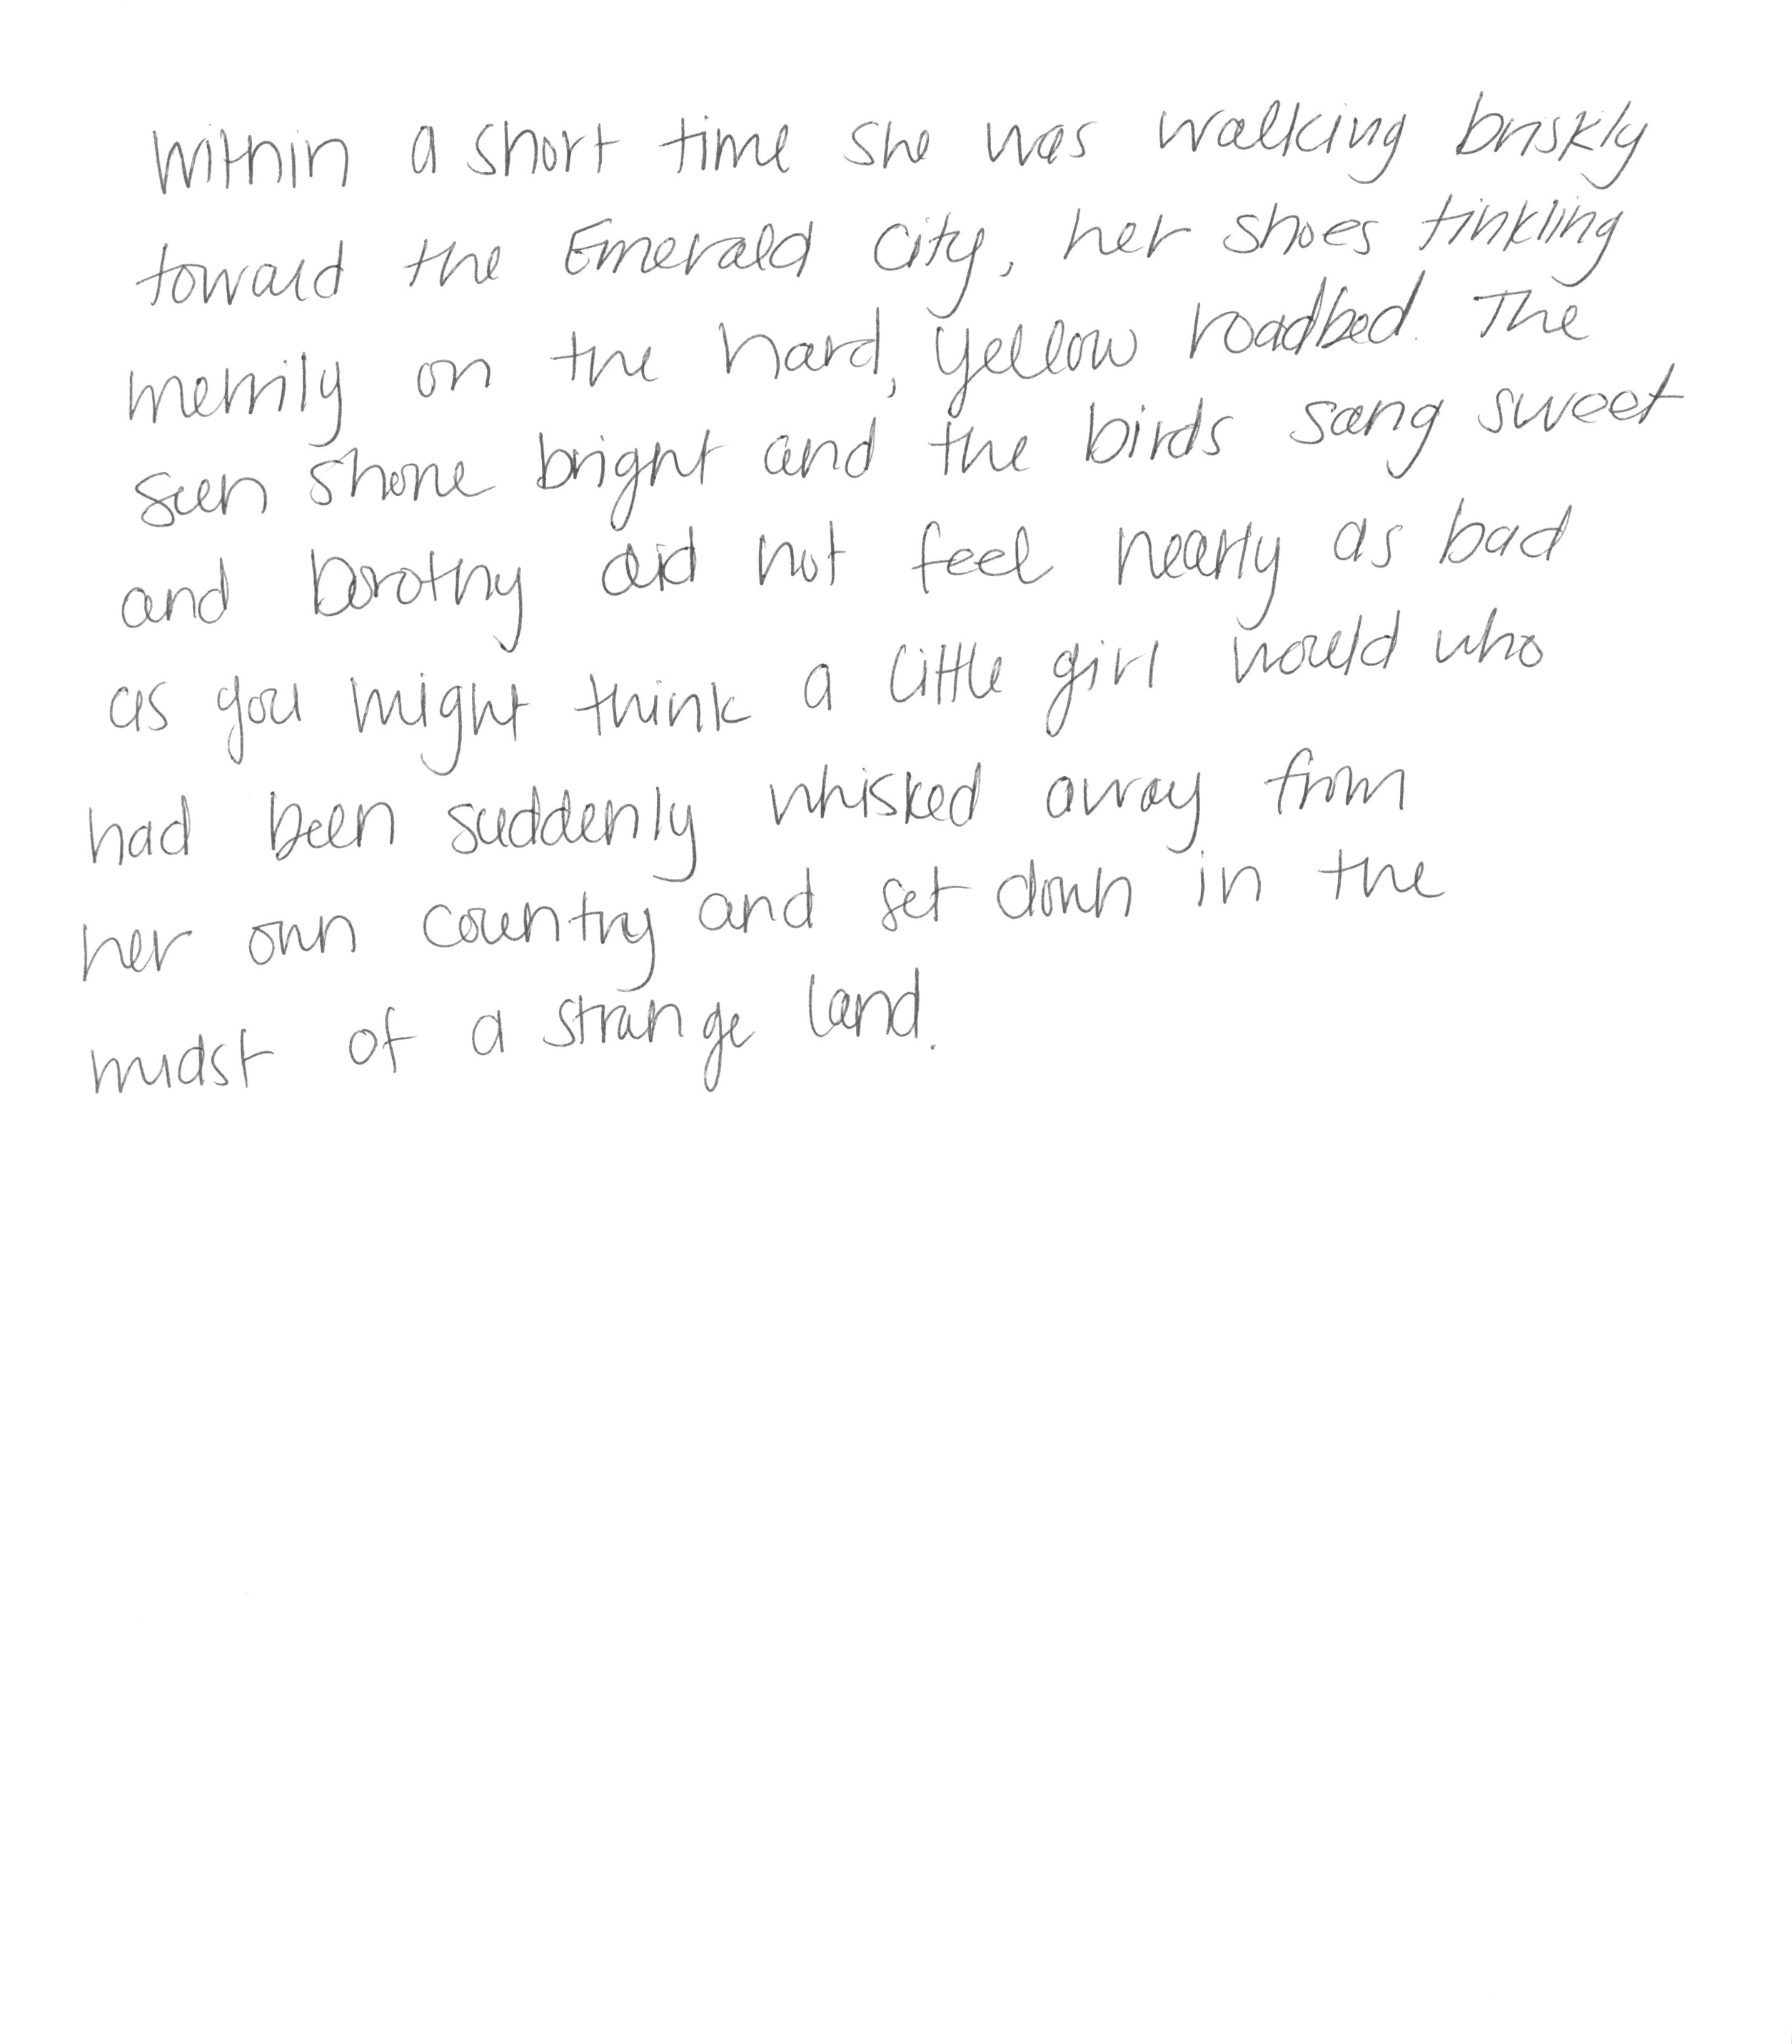 Within a short time she was walking briskly
toward the Emerald City, her shoes tinkling
merrily on the hard, yellow roadbed. The
sun shone bright and the birds sang sweet
and Dorothy did not feel nearly as bad
as you might think a little girl would who
had been suddenly whisked away from
her own country and set down in the
midst of a strange land.